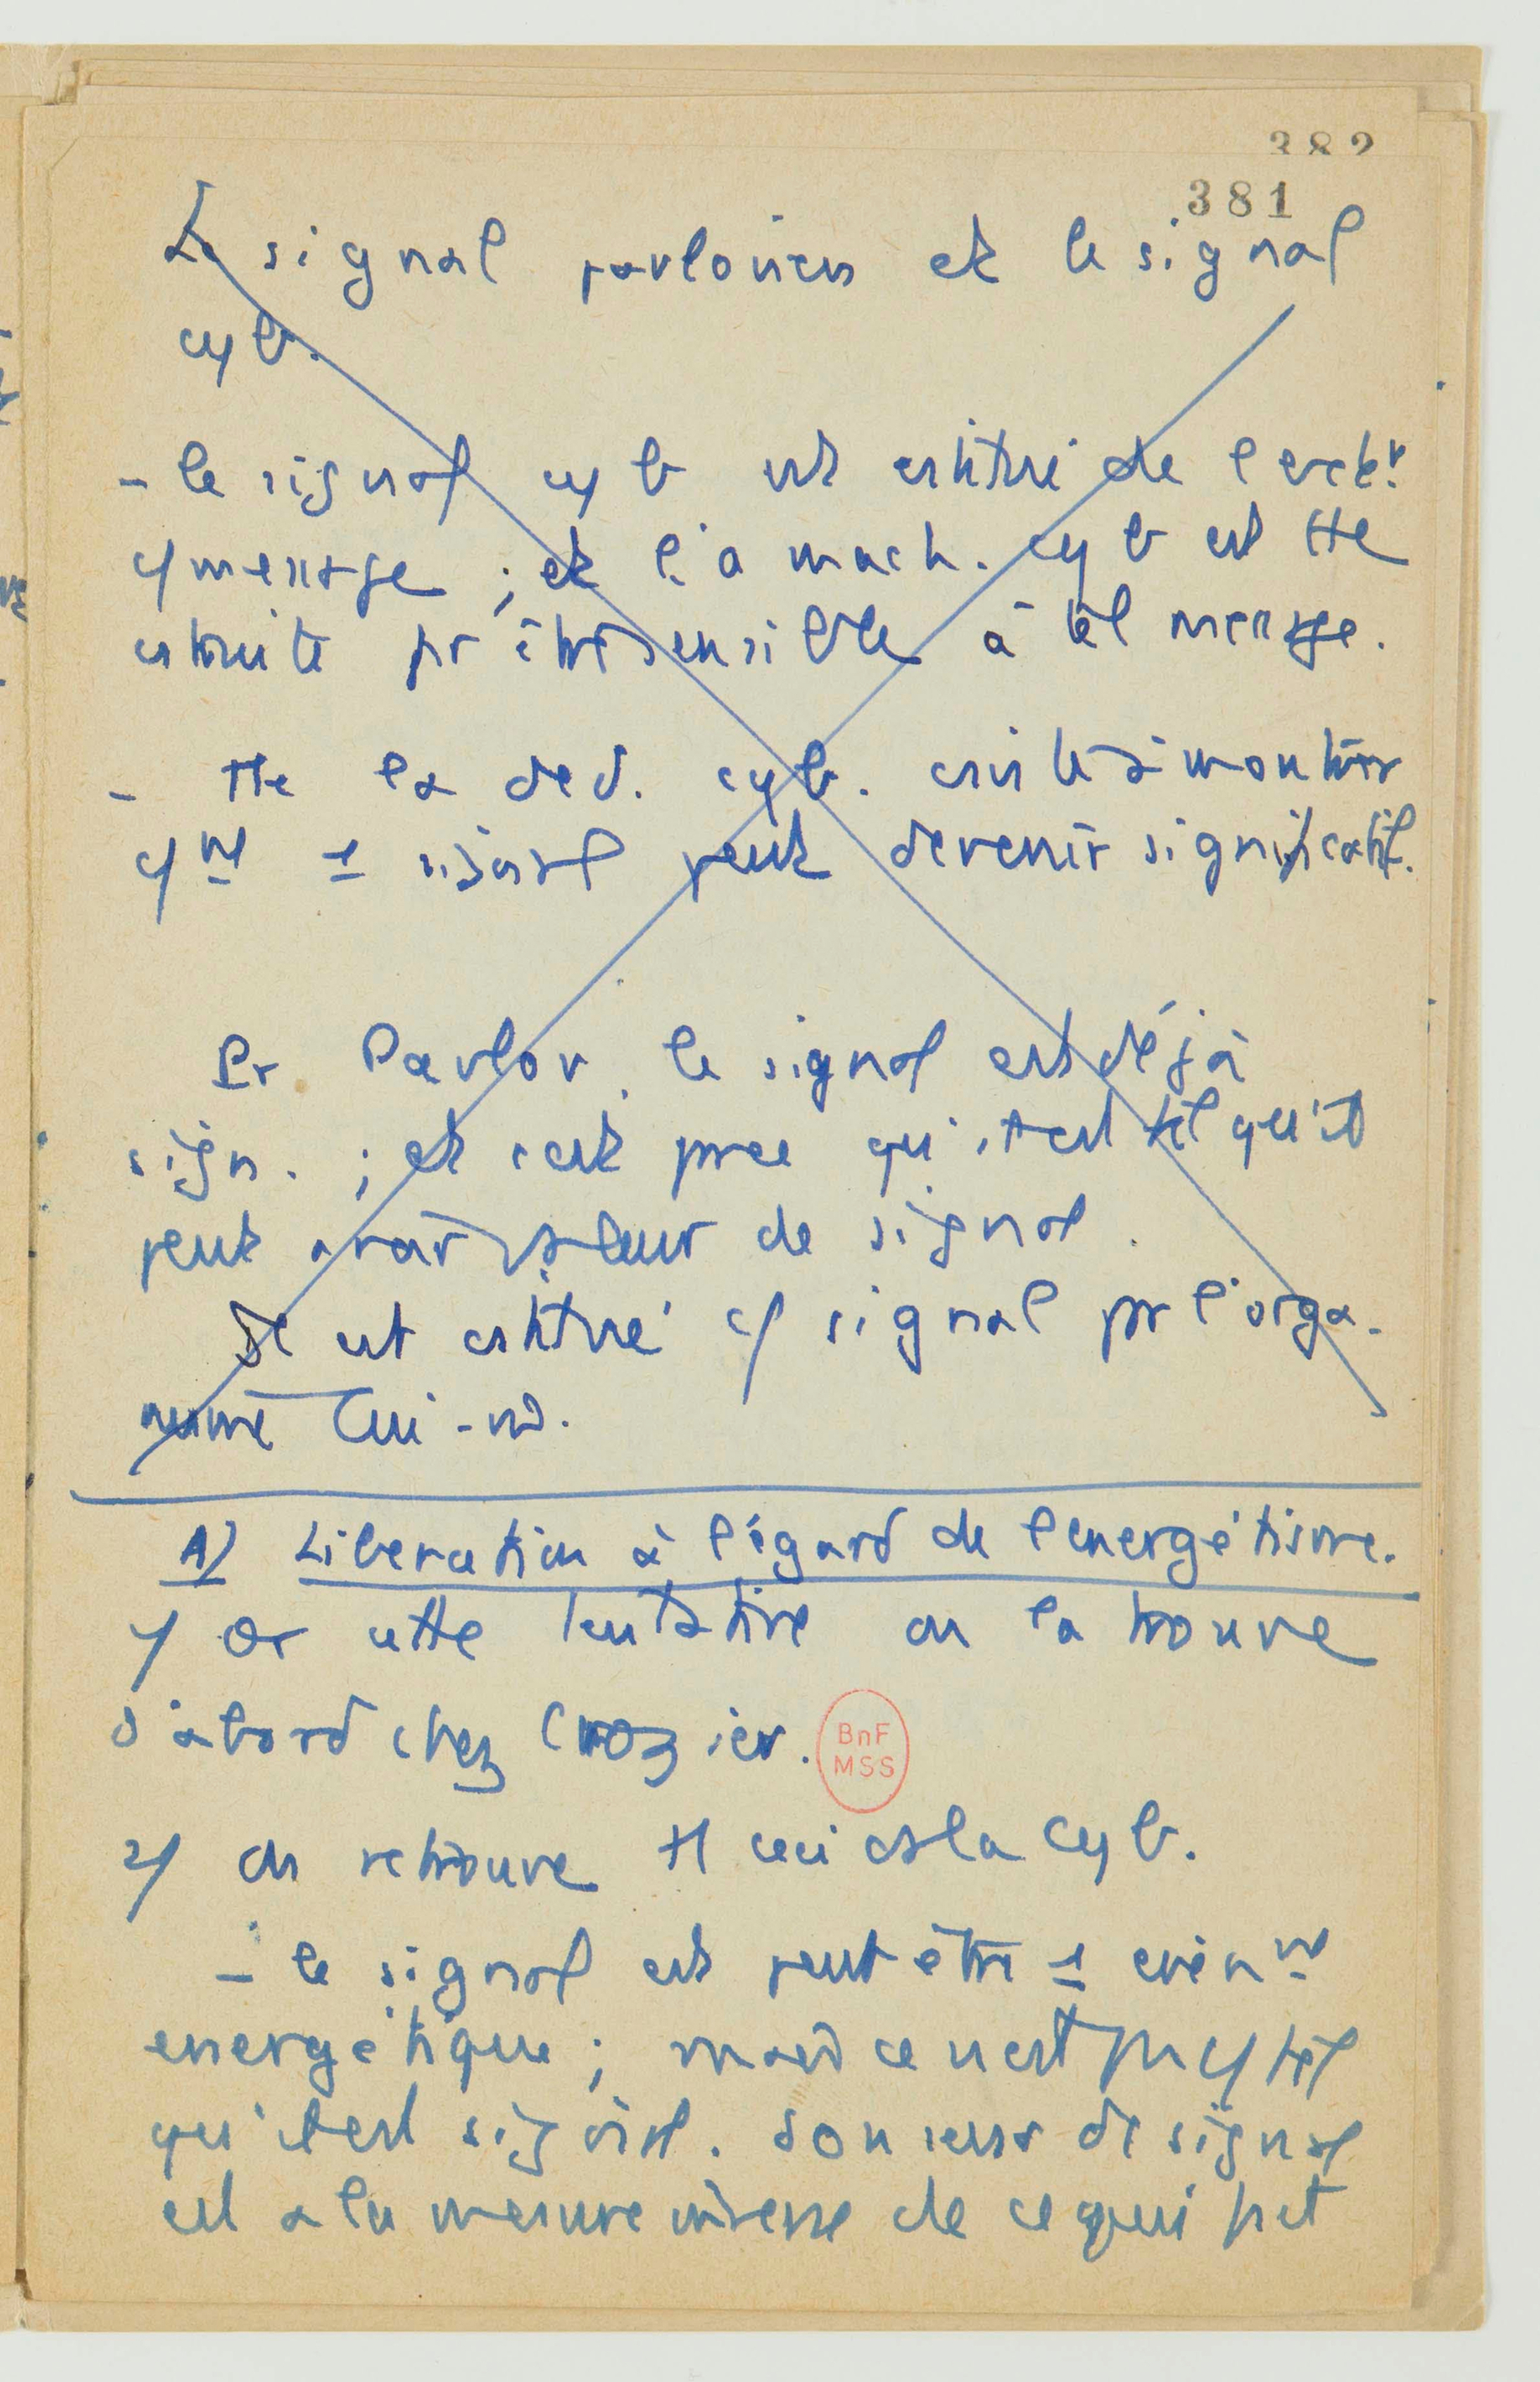 382
381
Le signal pavlovien et le signal
cyb.
- le signal cyb est cstitué de l'
c/ message ; et l'a mach. cyb est tte
cstruite pr être sensible à tel message.
- Tte la cyb. csiste à montrer
c/nt 1 signal peut devenir significatif.
Pr Pavlov, le signal est déjà
sign. ; et c'est parce qu'il est tel qu'il
peut avoir valeur de signal.
Il est cstitué c/ signal pr l'orga-
nisme lui-m.
A) Libération à l'égard de l'energétisme.
1/ Or cette tentative on la trouve
d'abord chez Crozier.
BnF
MSS
2/ On retrouve tt ceci ds la cyb.
- le signal est peut être 1 evénnt
energétique ; mais ce n'est pas c/ tel
qu'il est signal. Son de signal
est à la mesure inverse de ce qui